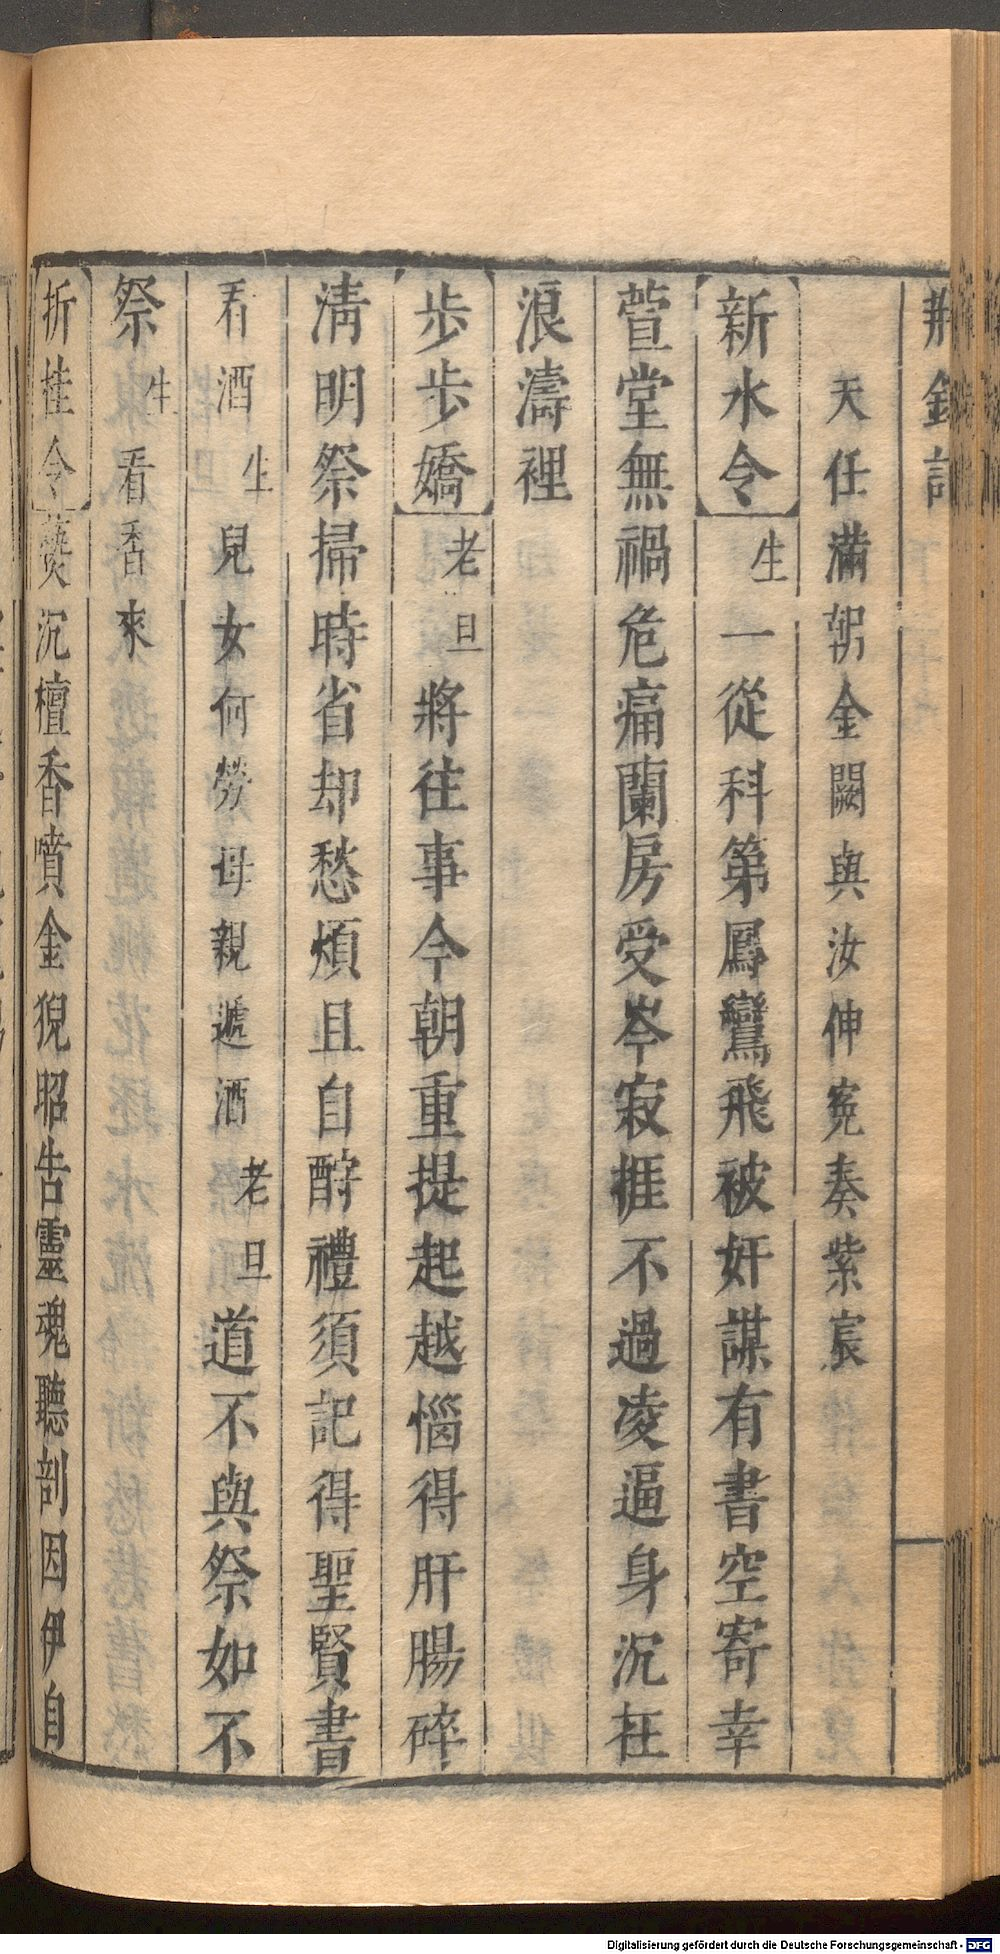 荆釵記
天任滿朝金闕與汝伸寃奏紫宸
新水令 生 一從科第鳳鸞飛被奸謀有書空寄幸
萱堂無禍危痛蘭房受岑寂捱不過凌逼身沉在
浪濤裡
步步嬌 老旦 將往事今朝重提起越惱得肝腸碎
清明祭掃時省却愁煩且自酹禮須記得聖賢書
看酒 生 兒女何勞母親遞酒 老旦 道不與祭如不
祭 生 看香來
折桂令 爇沉檀香噴金猊昭告靈魂聽剖因伊自
Digitalisierung gefördert durch die Deutsche Forschungsgemeinschaft - DFG